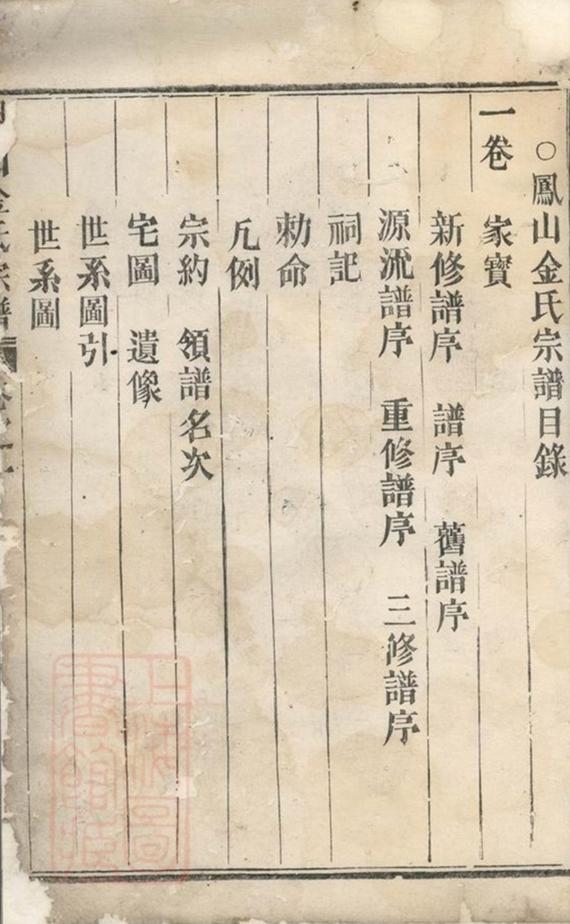 ○鳳山金氏宗譜目錄
一卷 家寶
新修譜序 譜序 舊譜序
源流譜序 重修譜序 三修譜序
祠記
勅命
凡例
宗約 領譜名次
宅圖 遺像
世系圖引
世系圖
山金氏宗譜 卷之一
上海圖書館藏